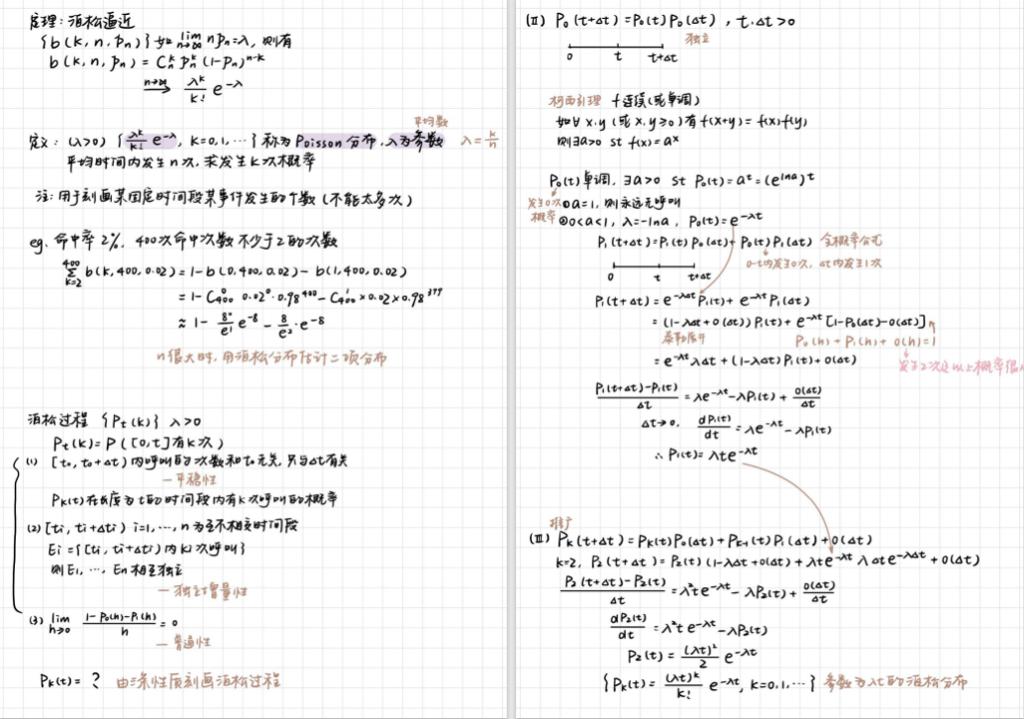 定理：泊松逼近
{b(k,n,pₙ)} 如 lim n→∞ npₙ=λ, 则有
b(k,n,pₙ) = Cₙᵏ pₙᵏ (1-pₙ)ⁿ⁻ᵏ
n→∞ ⟶ λᵏ/k! e^-λ
平均数
定义：(λ>0) {λᵏ/k! e^-λ, k=0,1,…} 称为 Poisson 分布, λ为参数 λ=k/n
平均时间内发生n次, 求发生k次概率
注：用于刻画某固定时间段某事件发生的个数 (不能太多次)
eg. 命中率2%, 400次命中次数不少于2的次数
∑(k=2→400) b(k,400,0.02) = 1-b(0,400,0.02) - b(1,400,0.02)
= 1- C₄₀₀⁰ 0.02⁰·0.98⁴⁰⁰ - C₄₀₀¹ × 0.02 × 0.98³⁹⁹
n很大时, 用泊松分布估计二项分布
泊松过程 {Pt(k)} λ>0
Pt(k)=P([0,t]有k次)
(1) [t₀,t₀+Δt) 内呼叫的次数和t₀无关, 只与Δt有关
—平稳性
Pk(t)在长度为t的时间段内有k次呼叫的概率
(2) [ti, ti+Δti) i=1,…,n 为互不相交时间段
Ei={[ti, ti+Δti)内ki次呼叫}
则E₁,…,En相互独立
—独立增量性
(3) lim h→0 (1-P₀(h)-P₁(h))/h = 0
—普通性
Pk(t)= ? 由三条性质刻画泊松过程
(II) P₀(t+Δt)=P₀(t)P₀(Δt), t·Δt>0
独立
0 t t+Δt
柯西引理 f连续(或单调)
如∀x,y (或x,y≥0)有f(x+y)=f(x)f(y)
则∃a>0 st f(x)=aˣ
P₀(t)单调, ∃a>0 st P₀(t)=aᵗ=(e^lna)ᵗ
发生0次概率
①a=1, 则永远无呼叫
②0<a<1, λ=-lna, P₀(t)=e^-λt
P₁(t+Δt)=P₁(t)P₀(Δt)+P₀(t)P₁(Δt) 全概率公式
0-t内发生0次, Δt内发生1次
0 t t+Δt
P₁(t+Δt)=e^-λΔt P₁(t)+e^-λt P₁(Δt)
=(1-λΔt+o(Δt))P₁(t)+e^-λt[1-P₀(Δt)-o(Δt)]
泰勒展开 P₀(h)+P₁(h)+o(h)=1
= e^-λt λΔt+(1-λΔt)P₁(t)+o(Δt)
发生2次及以上概率很
(P₁(t+Δt)-P₁(t))/Δt = λe^-λt-λP₁(t)+o(Δt)/Δt
Δt→0, dP₁(t)/dt = λe^-λt-λP₁(t)
∴ P₁(t)=λte^-λt
推广
(III) Pk(t+Δt)=Pk(t)P₀(Δt)+Pk-1(t)P₁(Δt)+o(Δt)
k=2, P₂(t+Δt)=P₂(t)(1-λΔt+o(Δt))+λte^-λt λΔte^-λΔt+o(Δt)
(P₂(t+Δt)-P₂(t))/Δt = λ²te^-λt-λP₂(t)+o(Δt)/Δt
dP₂(t)/dt = λ²te^-λt-λP₂(t)
P₂(t)= (λt)²/2 e^-λt
{Pk(t)= (λt)ᵏ/k! e^-λt, k=0,1,…} 参数为λt的泊松分布